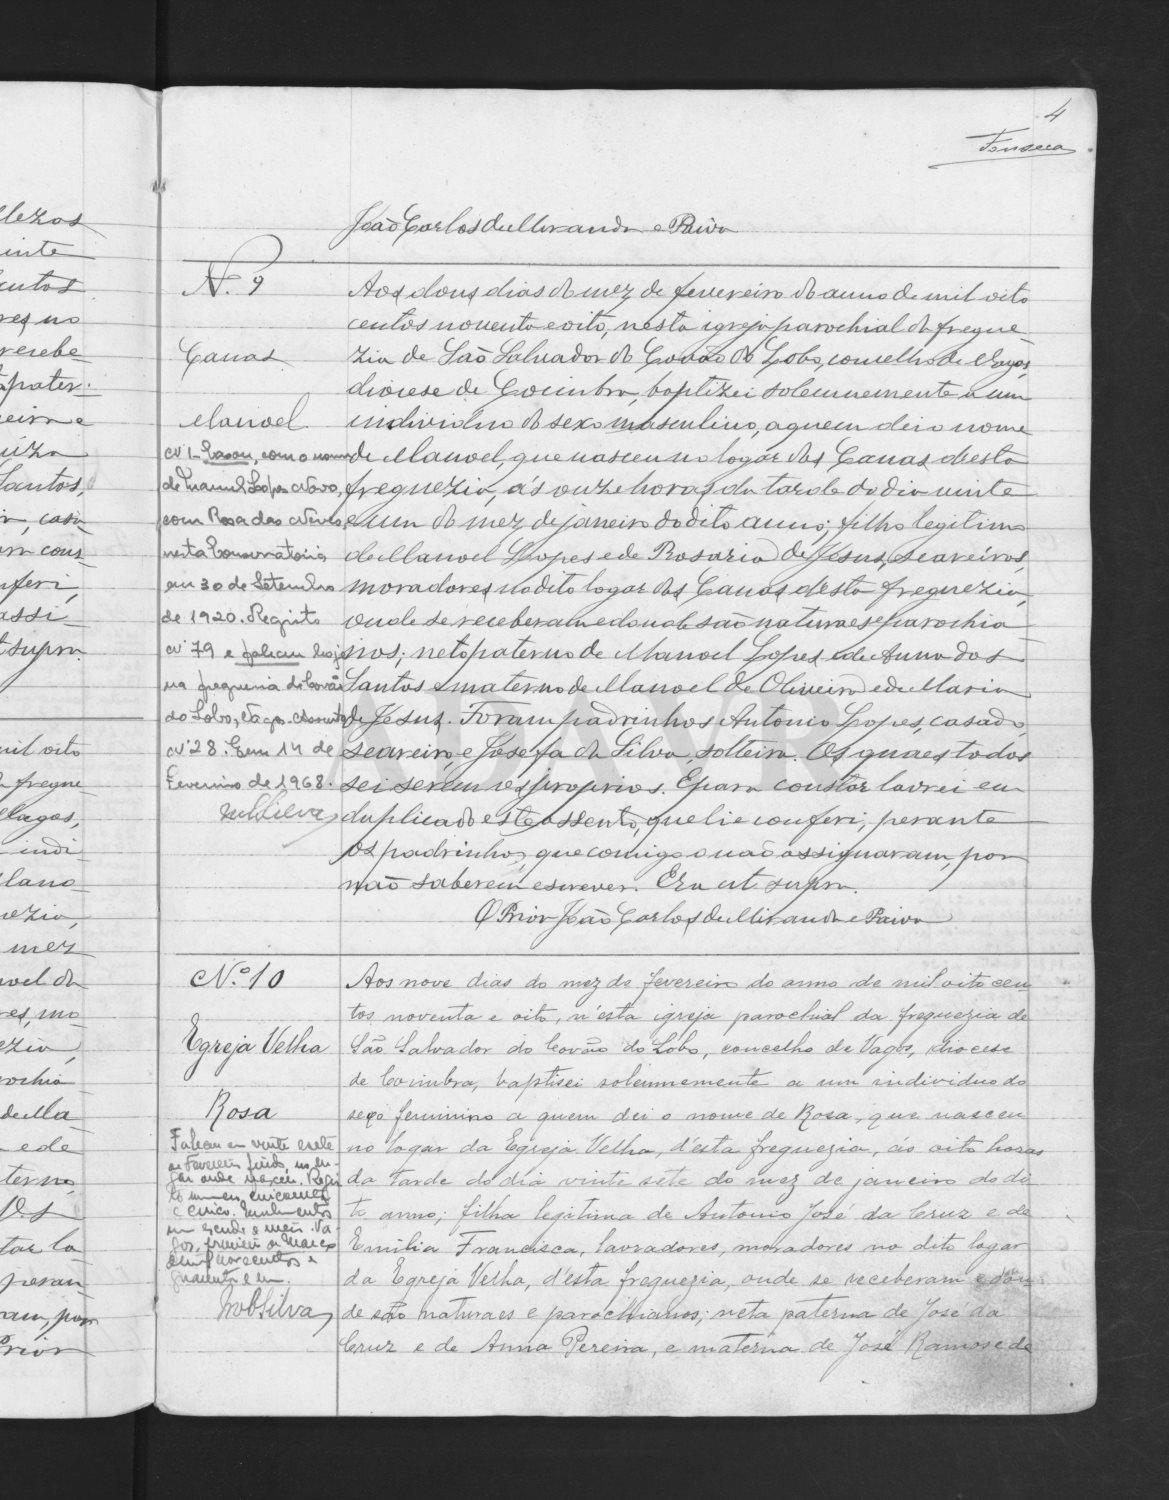 4
Fonseca
João Carlos de Miranda e Paiva
N.º 9
Canas
Manoel
Nº 1 Casou, com o nome
de Manuel Lopes Novo,
com Rosa das Neves,
nesta Conservatoria
em 30 de Setembro
de 1920. Registo
nº 79 e faleceu hoje
na freguesia de Covão
do Lobo, Vagos. Assento
nº 28. Em 14 de
Fevereiro de 1968.
MobSilva
Aos dous dias do mez de fevereiro do anno de mil oito
centos noventa e oito, nesta igreja parochial da fregue
zia de São Salvador do Covão do Lobo, concelho de Vagos,
diocese de Coimbra, baptizei solemnemente a um
individuo do sexo masculino, a quem dei o nome
de Manoel, que nasceu no logar das Canas desta
freguezia, ás onze horas da tarde do dia vinte
e um do mez de janeiro do dito anno; filho legitimo
de Manoel Lopes e de Rosaria de Jesus, seareiros,
moradores no dito logar das Canas desta freguezia,
onde se receberam e donde são naturaes e parochia
nos; neto paterno de Manoel Lopes e de Anna dos
Santos e materno de Manoel de Oliveira e de Maria
de Jesus. Foram padrinhos Antonio Lopes, casado,
seareiro, e Josefa da Silva, solteira. Os quaes todos
sei serem os proprios. E para constar lavrei em
duplicado este assento, que li e conferi, perante
os padrinhos, que comigo o não assignaram, por
não saberem escrever. Era ut supra.
O Prior João Carlos de Miranda e Paiva
N.º 10
Egreja Velha
Rosa
Faleceu em vinte e sete
de Fevereiro findo, no lu-
gar onde nasceu. Regis
to numero cincoenta
e cinco. Emolumentos
Va-
gos, primeiro de Março
de mil novecentos e
quarenta e um.
MobSilva
Aos nove dias do mez de fevereiro do anno de mil oito cen
tos noventa e oito, n'esta igreja parochial da freguezia de
São Salvador do Covão do Lobo, concelho de Vagos, diocese
de Coimbra, baptisei solemnemente a um individuo do
sexo feminino a quem dei o nome de Rosa, que nasceu
no logar da Egreja Velha, d'esta freguezia, ás oito horas
da tarde do dia vinte sete do mez de janeiro do di
to anno; filha legitima de Antonio José da Cruz e de
Emilia Francisca, lavradores, moradores no dito logar
da Egreja Velha, d'esta freguezia, onde se receberam e don-
de são naturaes e parochianos; neta paterna de José da
Cruz e de Anna Pereira, e materna de José Ramos e de